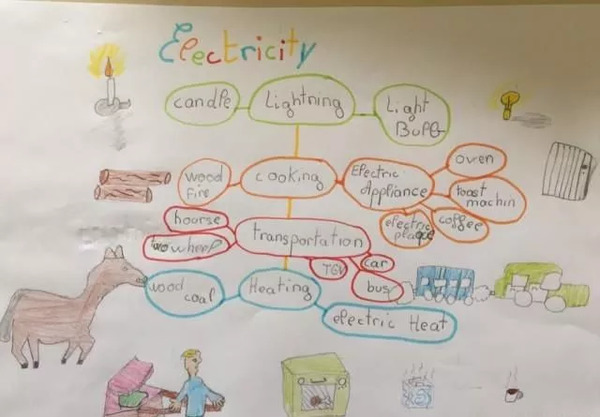 Electricity
candle
Lightning
Light
Bulb
wood
fire
cooking
Electric
Appliance
oven
toast
machin
coffee
electric
plaque
hourse
two wheel
transportation
TGV
car
bus
wood
coal
Heating
electric Heat